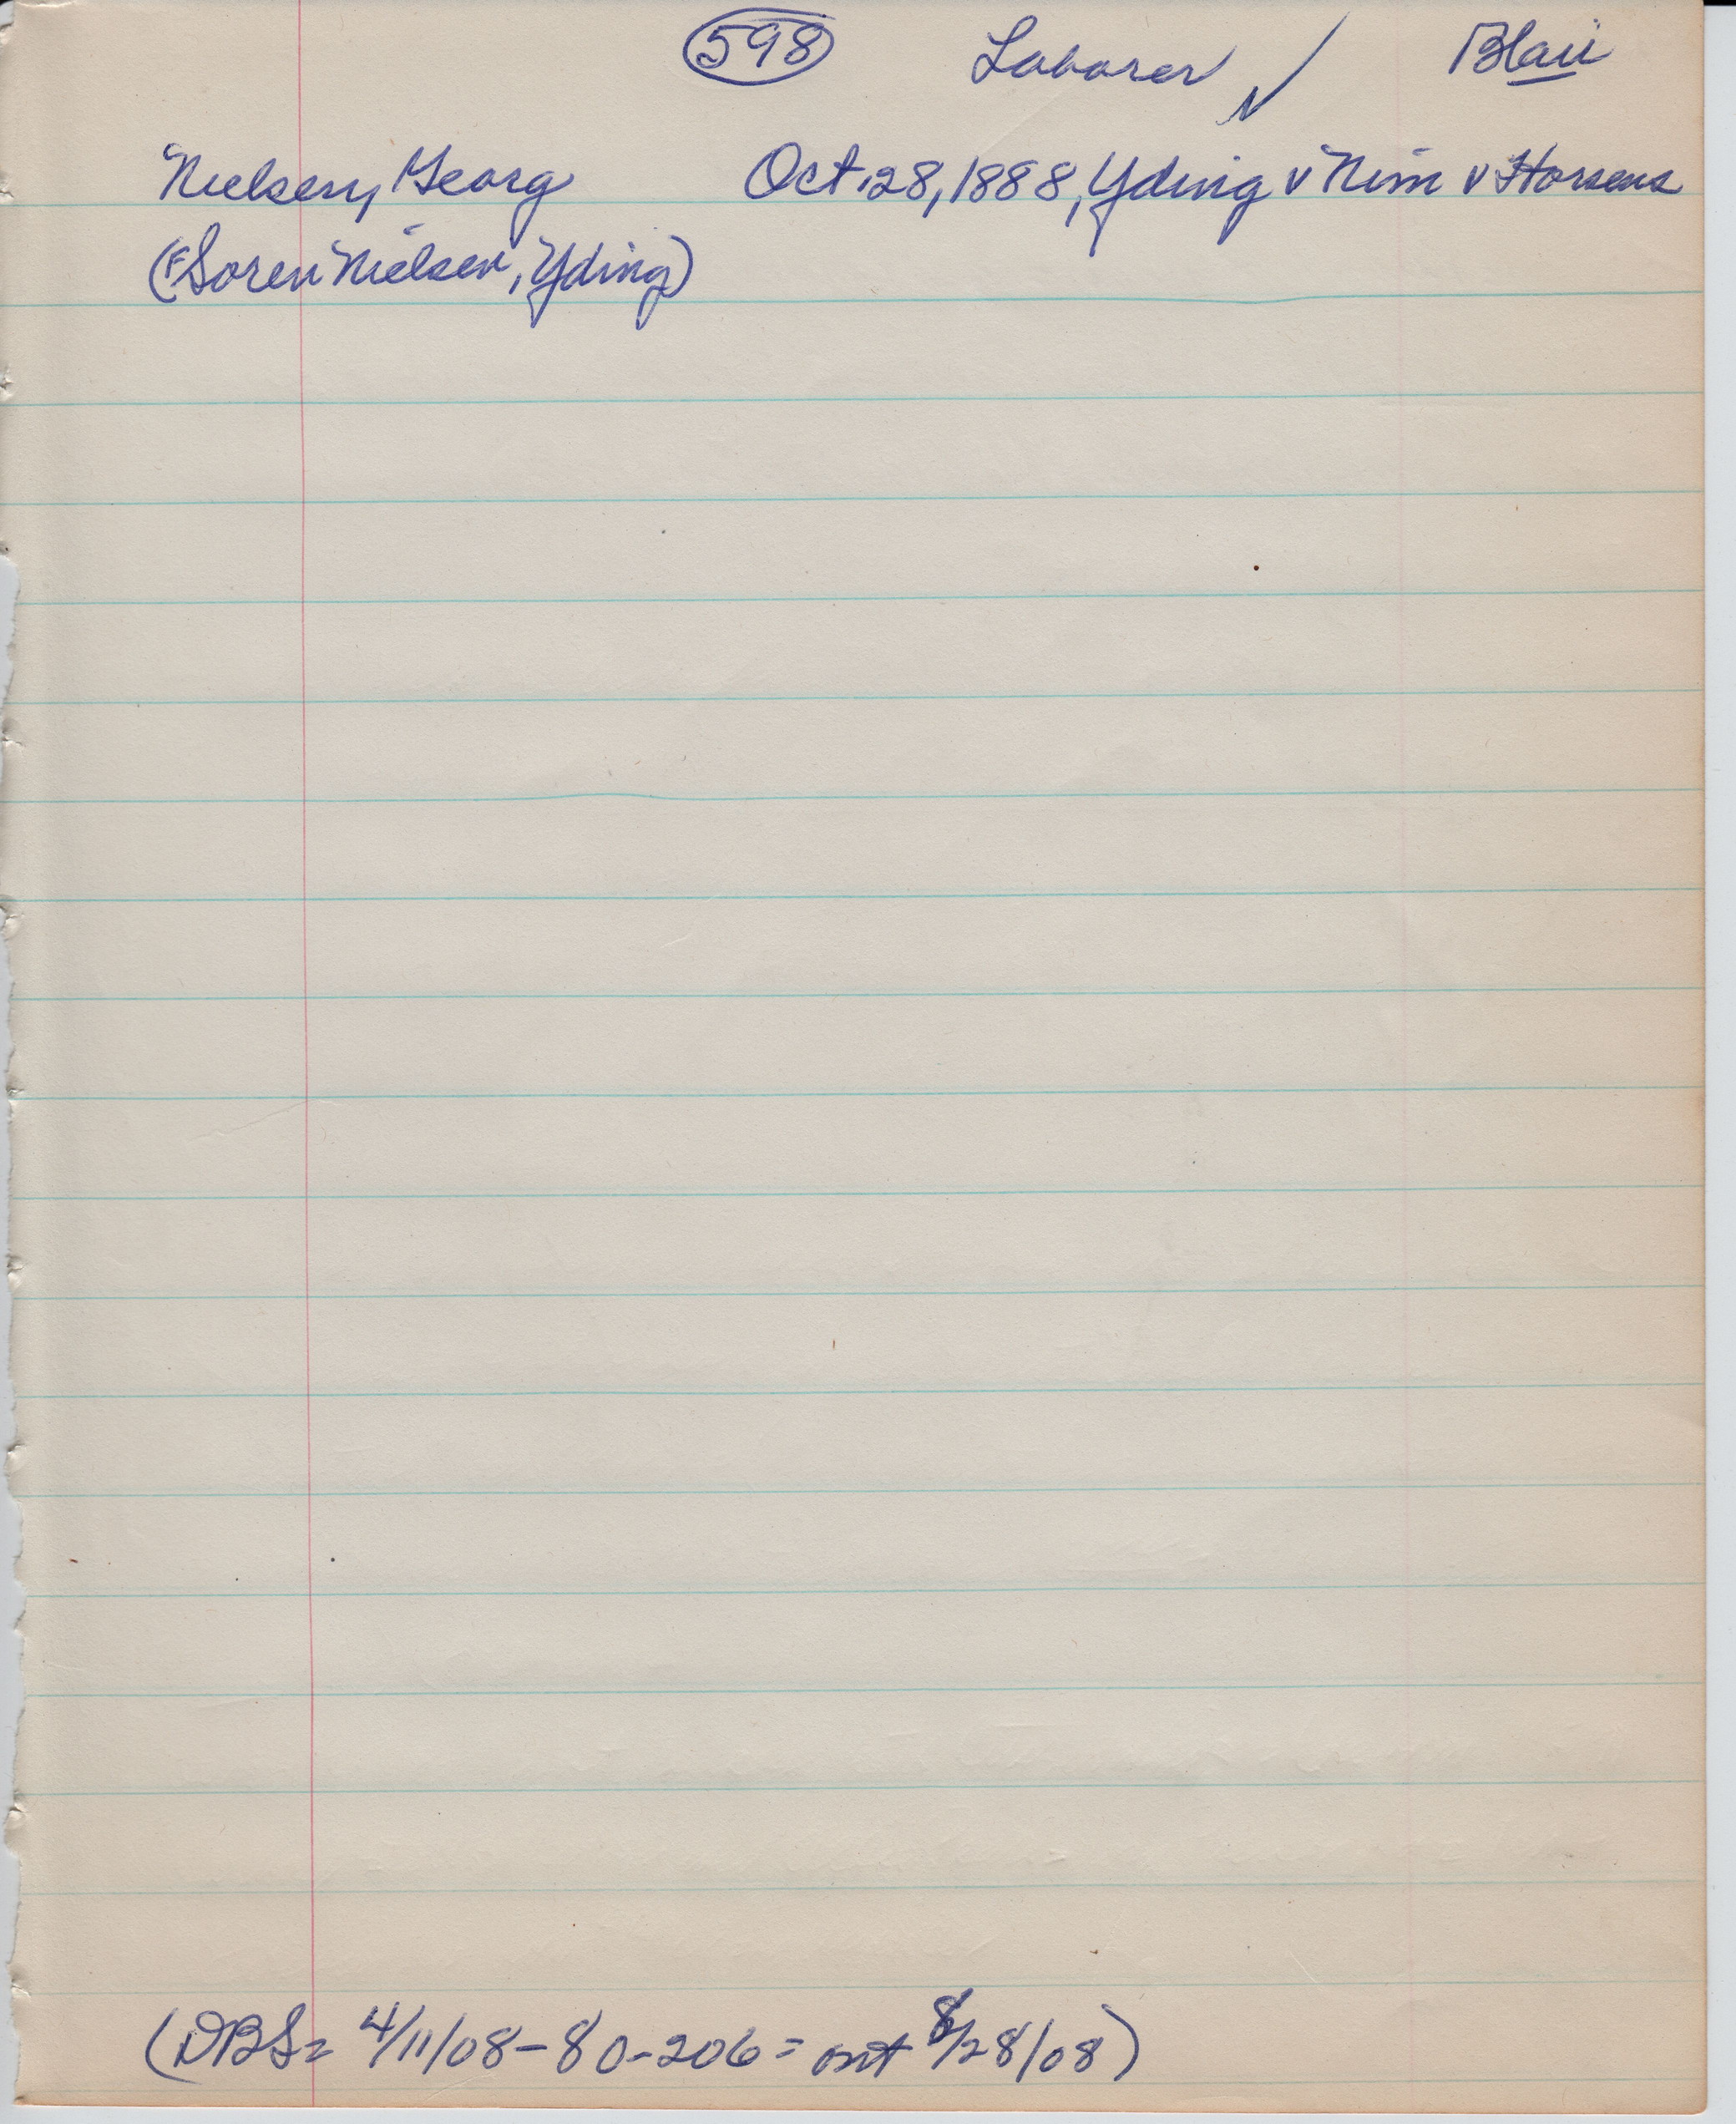 598 Laborer ✓ Blair
Nielsen, Georg Oct. 28, 1888, Yding v Nim v Horsens
(F Soren Nielsen, Yding)
(DBS = 4/11/08 - 80-206 = ant 8/28/08)